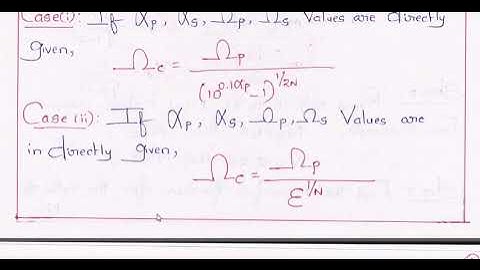 Case(i): If αp, αs, Ωp, Ωs Values are directly
given,
Ωc = Ωp / (10^0.1αp - 1)^1/2N
Case(ii): If αp, αs, Ωp, Ωs Values are
in directly given,
Ωc = Ωp / ε^1/N